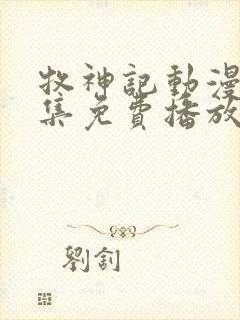 牧神記動漫
集免費播放
劉釗